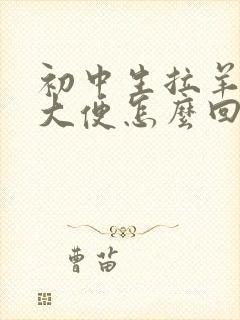 初中生拉羊
大便怎麼回
曹苗